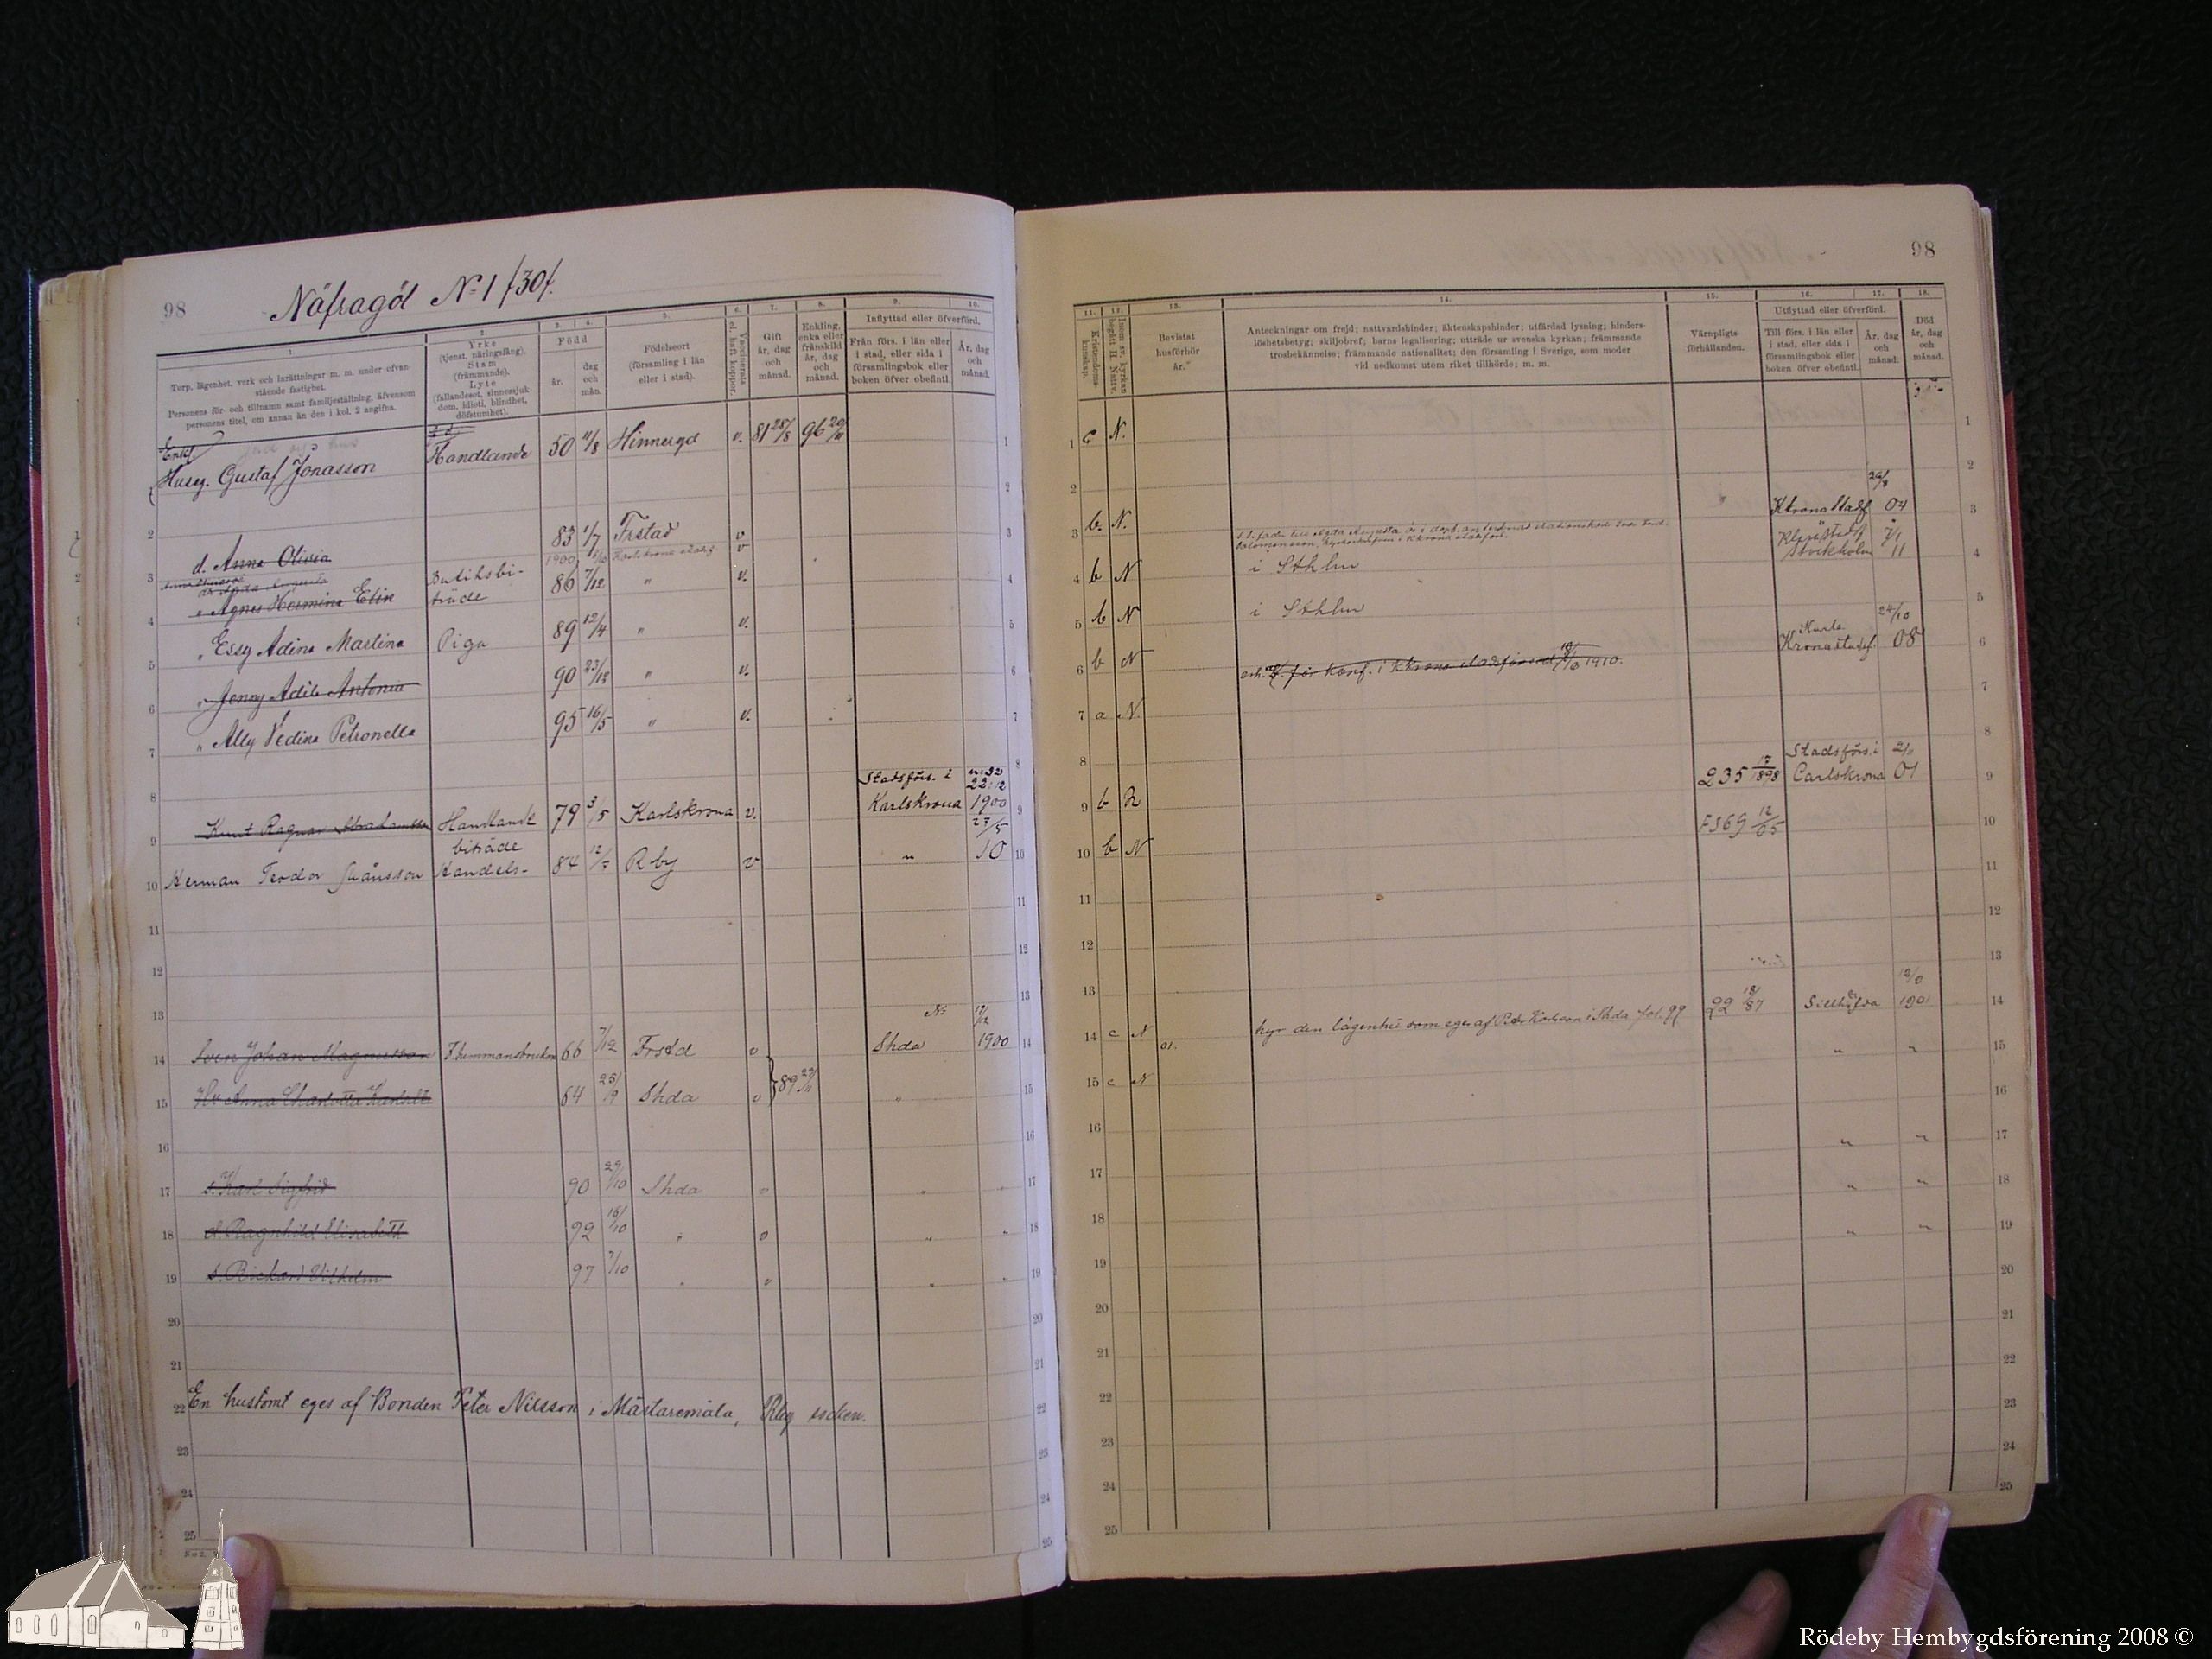 98
Näfragöl No 1 /30/.
1.
Torp, lägenhet, verk och inrättningar m. m. under ofvan-
stående fastighet.
Personens för- och tillnamn samt familjeställning, äfvensom
personens titel, om annan än den i kol. 2 angifna.
2.
Yrke
(tjenst, näringsfång).
Stam
(främmande).
Lyte
(fallandesot, sinnessjuk-
dom, idioti, blindhet,
döfstumhet).
3. 4.
Född
år.
dag
och
mån.
5.
Födelseort
(församling i län
eller i stad).
6.
Vaccinerad
el. haft koppor.
7.
Gift
år, dag
och
månad.
8.
Enkling,
enka eller
frånskild
år, dag
och
månad.
9. 10.
Inflyttad eller öfverförd.
Från förs. i län eller
i stad, eller sida i
församlingsbok eller
boken öfver obefintl.
År, dag
och
månad.
Enkl.
Huseg. Gustaf Jonasson Handlande 50 11/8 Hinneryd v. 81 28/8 96 20/11
d. Anna Olivia 83 1/7 Frstad v
1900 Karlskrona stadsf v
" Agnes Hermina Elin Butiksbi-
träde 86 7/12 " v.
" Essy Adina Martina Piga 89 12/4 " v.
" Jenny Adile Antonia 90 23/12 " v.
" Ally Vedina Petronella 95 16/5 " v.
Stadsförs. i
Knut Ragnar Abrahamsson Handlande 79 3/5 Karlskrona v. Karlskrona 22/12 1900
biträde 27/5
Herman Teodor Månsson Handels- 84 Rby v " 10
Sven Johan Magnusson F. hemmansbrukare 66 7/12 Frstd v Shda 12/12 1900
Hu Anna Charlotta 64 25/9 Shda v } 89 29/11 "
s. Karl Sigfrid 90 29/10 Shda v "
d. Ragnhild Elisabeth 92 16/10 " v " "
s. Rickard Vilhelm 97 7/10 " v " "
En hustomt eges af Bonden Peter Nilsson i Mästaremåla, Rby socken.
98
11.
Kristendoms-
kunskap.
12.
13.
Bevistat
husförhör
år.
14.
Anteckningar om frejd; nattvardshinder; äktenskapshinder; utfärdad lysning; hinders-
löshetsbetyg; skiljobref; barns legalisering; utträde ur svenska kyrkan; främmande
trosbekännelse; främmande nationalitet; den församling i Sverige, som moder
vid nedkomst utom riket tillhörde; m. m.
15.
Värnpligts-
förhållanden.
16. 17.
Utflyttad eller öfverförd.
Till förs. i län eller
i stad, eller sida i
församlingsbok eller
boken öfver obefintl.
År, dag
och
månad.
18.
Död
år, dag
och
månad.
1 c N.
3 b. N. Kkrona Stadf 04
4 b N i Sthlm Stockholm 11
5 b N i Sthlm
6 b N för konf. i Kkrona stadsförs. d. 1910. Kronastadsf. 24/10 08
7 a N.
9 b N 235 17/1898 Stadsförs. i
Carlskrona 01
10 b N 12/05
14 c N 01. hyr den lägenhet som eges af Petr Karlsson i Shda fol. 99 22 18/87 Sillhöfda 1901
15 c N " "
17 " "
18 " "
19 " "
Rödeby Hembygdsförening 2008 ©